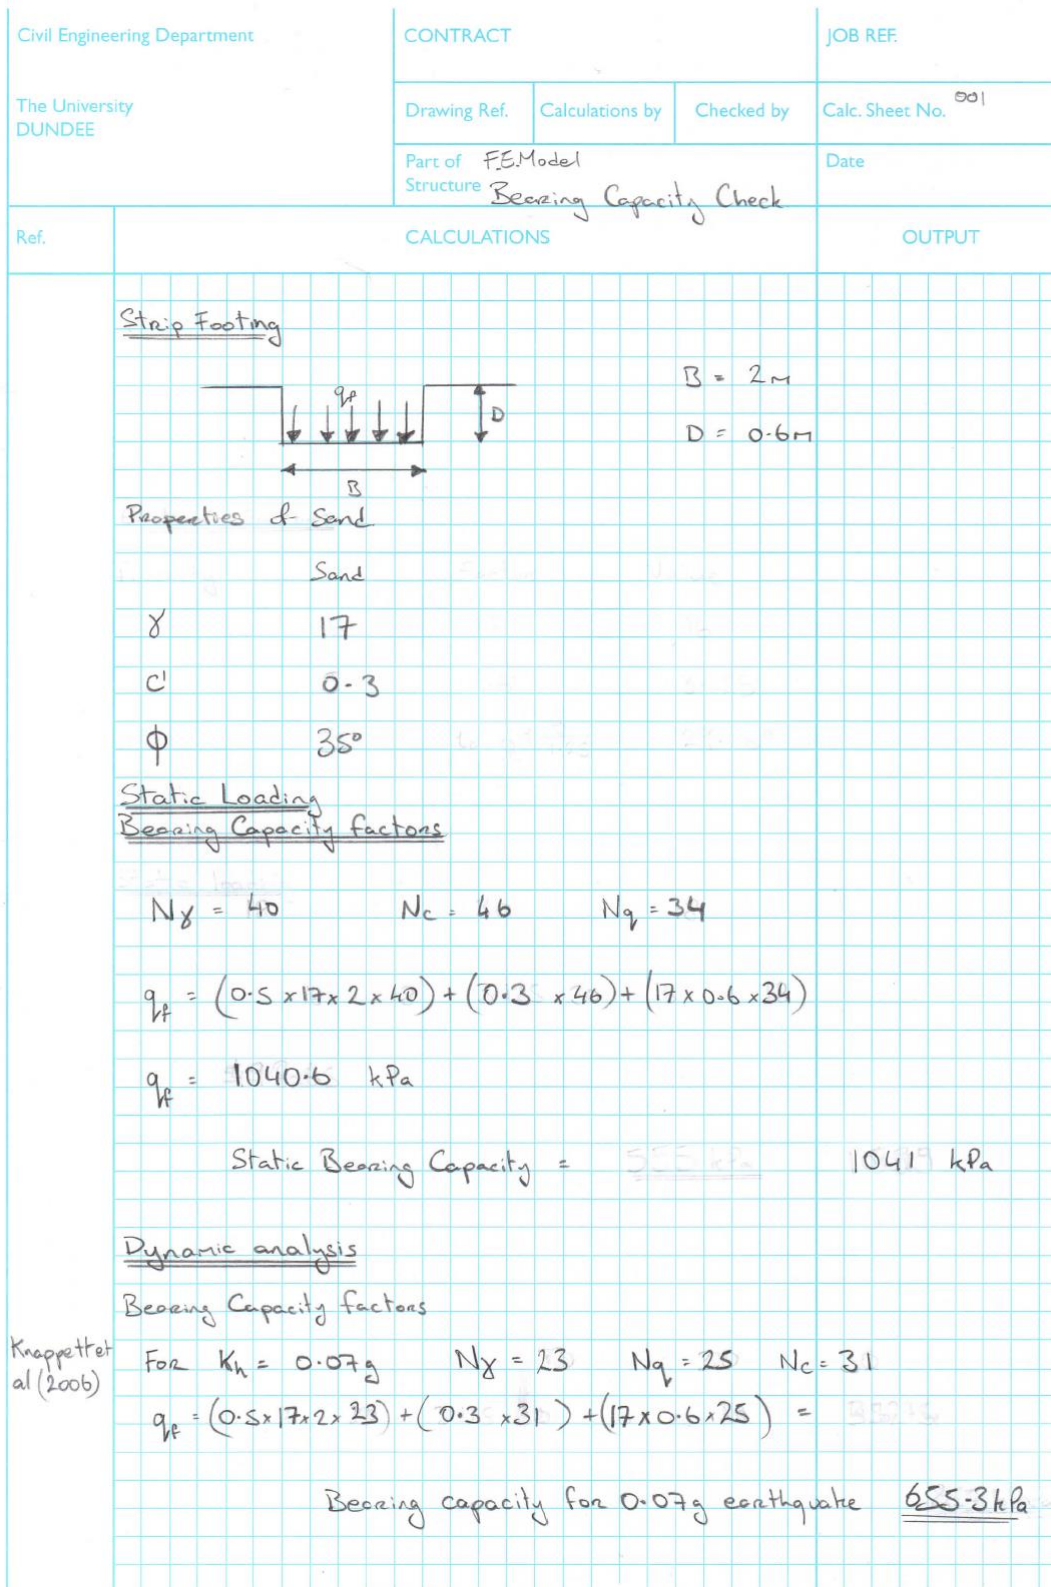 Civil Engineering Department
CONTRACT
JOB REF.
The University
DUNDEE
Drawing Ref.
Calculations by
Checked by
Calc. Sheet No. 001
Part of F.E.Model
Structure Bearing Capacity Check
Date
Ref.
CALCULATIONS
OUTPUT
Strip Footing
B = 2m
qf
D
D = 0.6m
B
Properties of Sand
Sand
γ 17
c' 0.3
ϕ 35°
Static Loading
Bearing Capacity factors
Nγ = 40 Nc = 46 Nq = 34
qf = (0.5 x 17 x 2 x 40) + (0.3 x 46) + (17 x 0.6 x 34)
qf = 1040.6 kPa
Static Bearing Capacity = 1041 kPa
Dynamic analysis
Bearing Capacity factors
Knappett et
al (2006)
For Kh = 0.07g Nγ = 23 Nq = 25 Nc = 31
qf = (0.5 x 17 x 2 x 23) + (0.3 x 31) + (17 x 0.6 x 25) =
Bearing capacity for 0.07g earthquake 655.3kPa